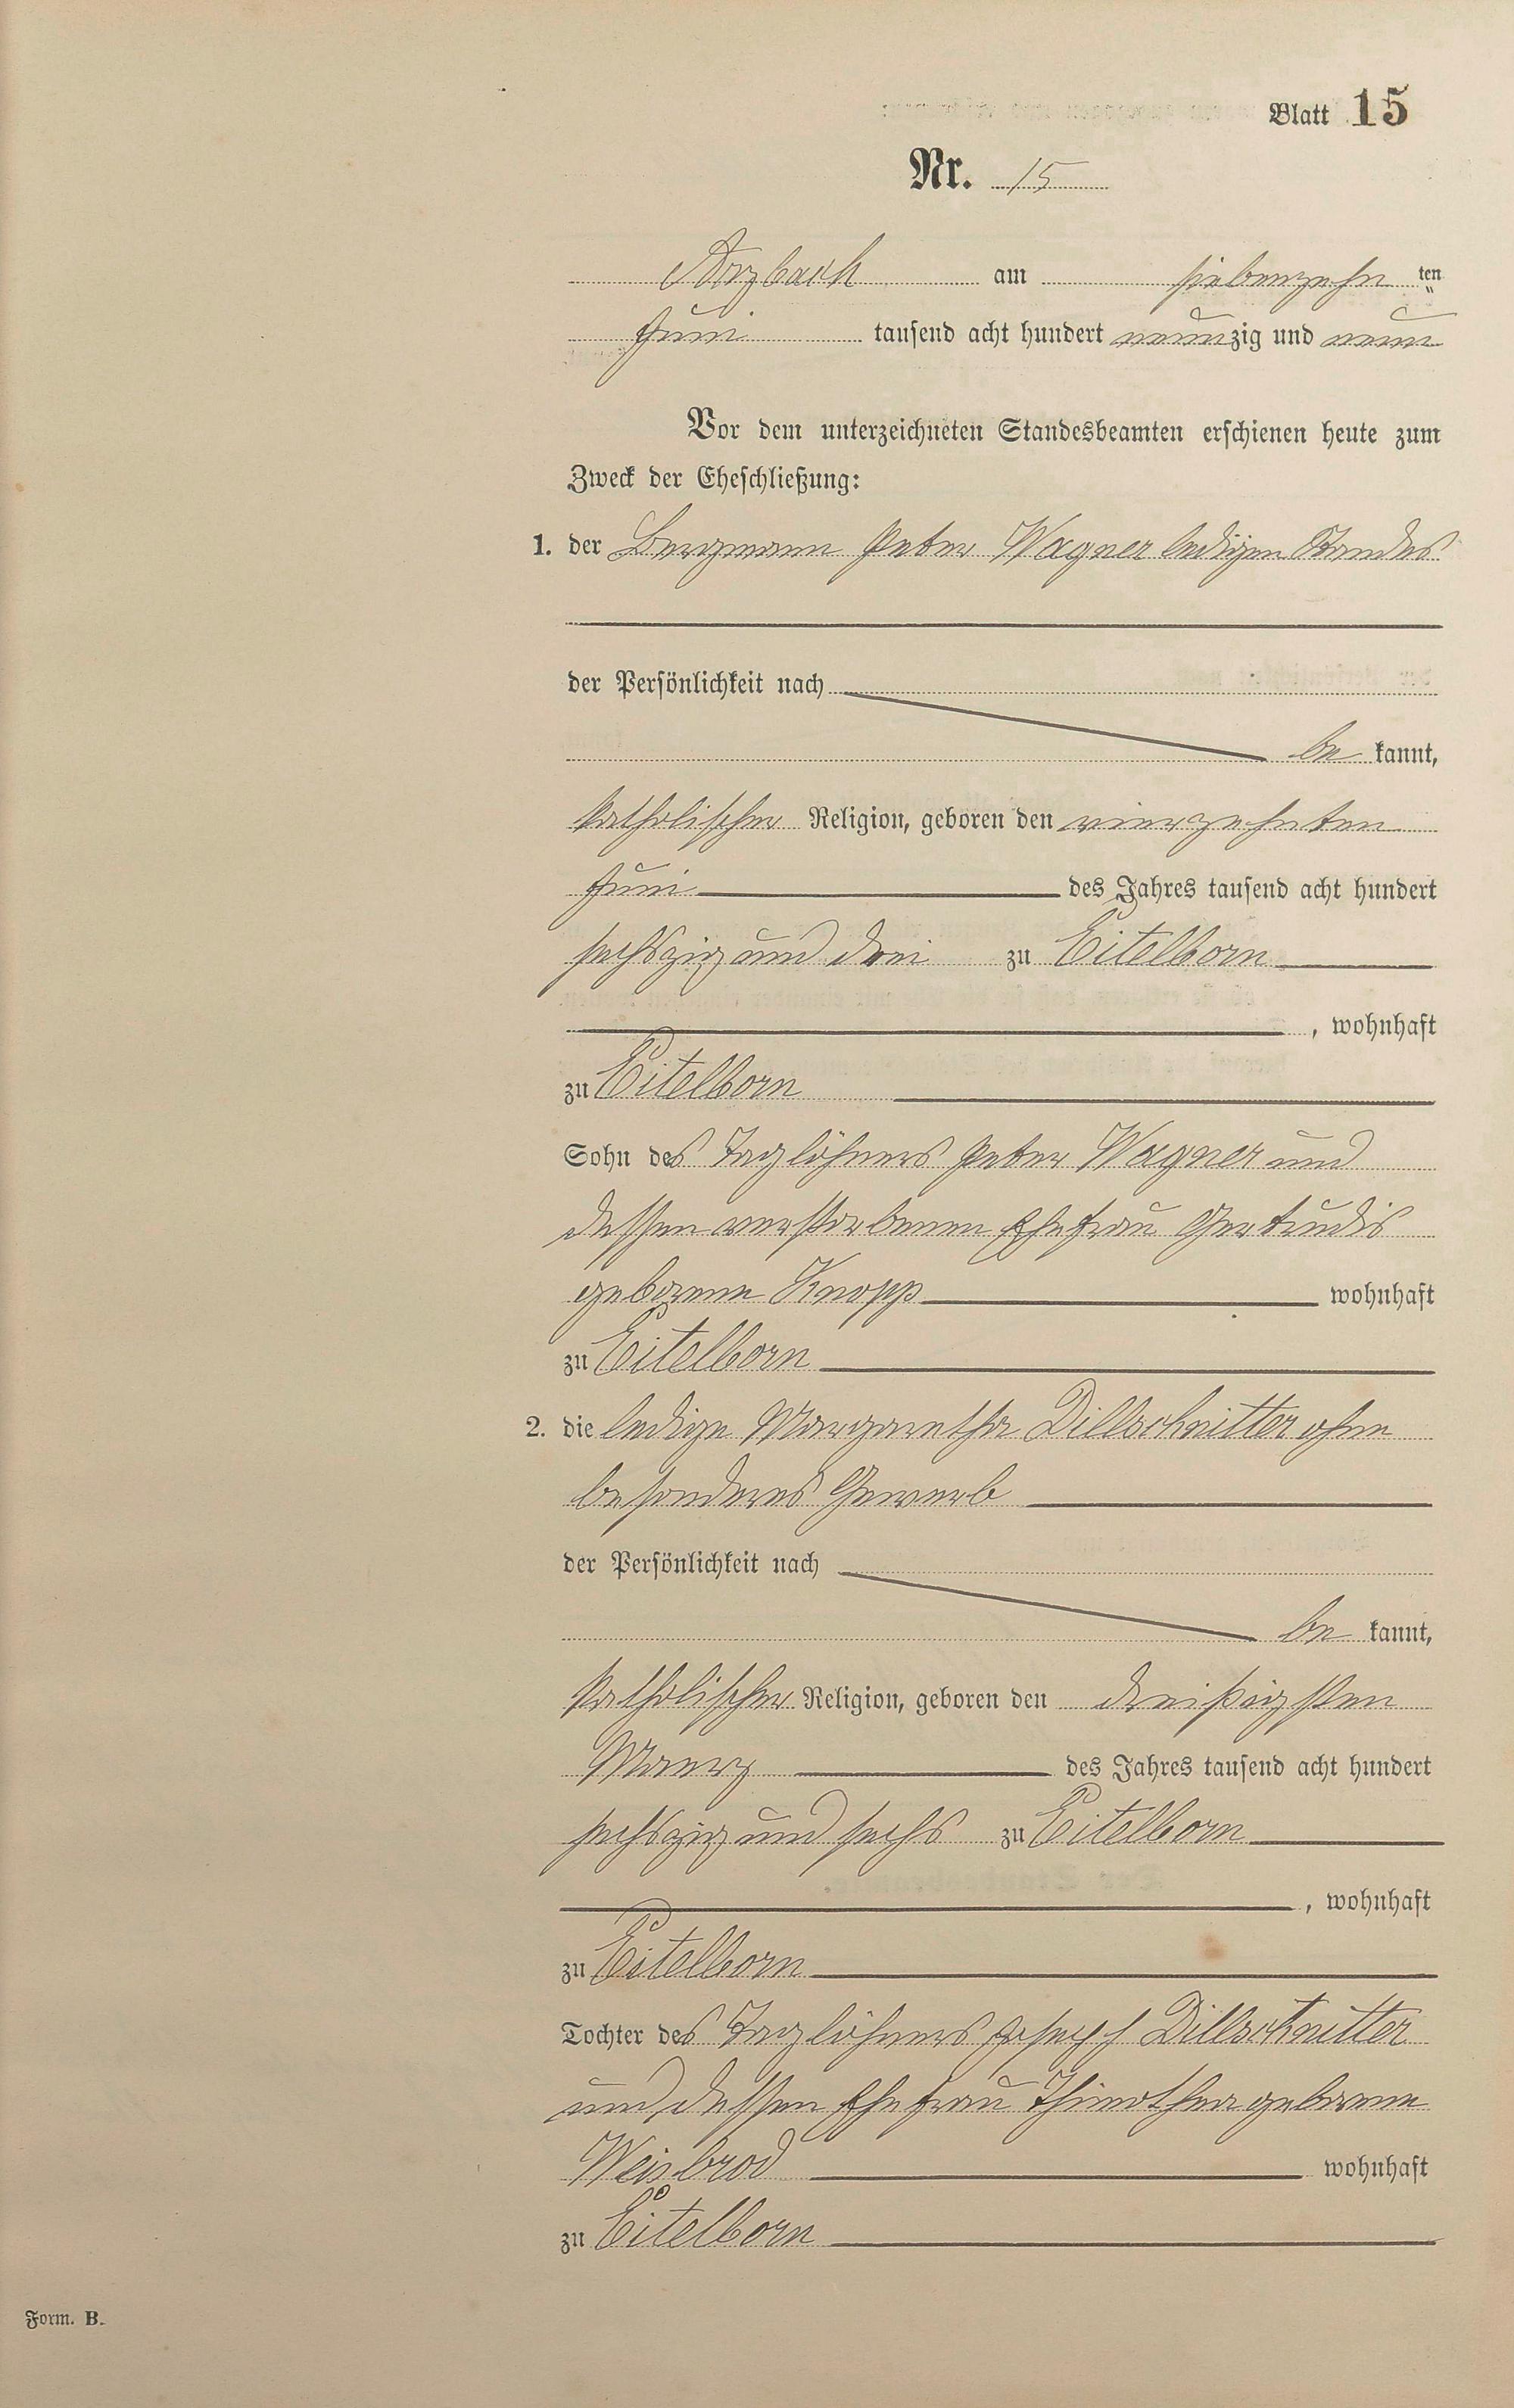 Blatt 15
Nr. 15
Arzbach am siebenzehn ten
Juni tausend acht hundert neunzig und neun
Vor dem unterzeichneten Standesbeamten erschienen heute zum
Zweck der Eheschließung:
1. der Bergmann Peter Wagner ledigen Standes
der Persönlichkeit nach
be kannt,
katholischer Religion, geboren den vierzehnten
Juni des Jahres tausend acht hundert
sechszig und drei zu Eitelborn
, wohnhaft
zu Eitelborn
Sohn des Taglöhners Peter Wagner und
dessen verstorbenen Ehefrau Gertrudis
geborene Knopp wohnhaft
zu Eitelborn
2. die ledige Margaretha Dillschnitter ohne
besonderes Gewerb
der Persönlichkeit nach
be kannt,
katholischer Religion, geboren den dreißigsten
Maerz des Jahres tausend acht hundert
sechszig und sechs zu Eitelborn
, wohnhaft
zu Eitelborn
Tochter des Taglöhners Joseph Dillschnitter
und dessen Ehefrau geborene
Weisbrod wohnhaft
zu Eitelborn
Form. B.